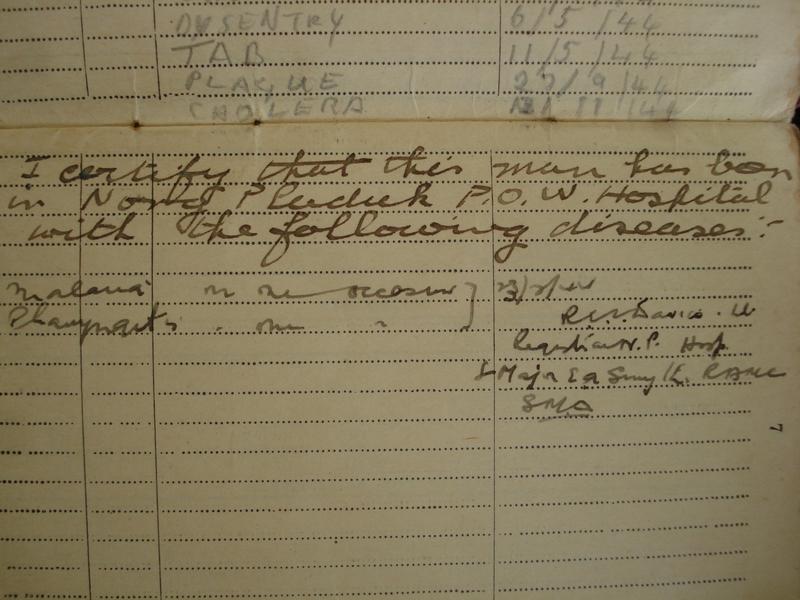 DYSENTRY 6/5/44
TAB 11/5/44
PLAGUE 27/9/44
CHOLERA /11/44
I certify that this man has been
in Nong Pladuk P.O.W. Hospital
with the following diseases:-
Malaria on one occasion
Pharyngitis " one "
Registrar N.P. Hosp
& Major E A Smyth. RAMC
SMO
7